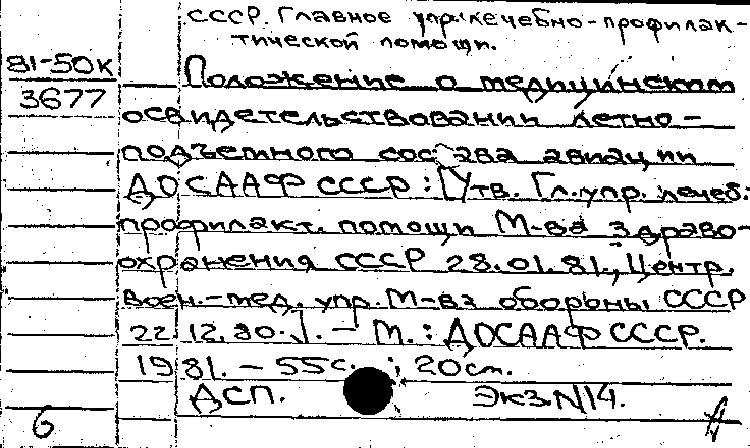 СССР. Главное упр. лечебно-профилак-
тической помощи.
81-50к
Положение о медицинском
3677
освидетельствовании летно-
подъемного состава авиации
ДОСААФ СССР: [Утв. Гл. упр. лечеб.-
профилакт. помощи М-ва здраво-
охранения СССР 28.01.81., Центр.
воен.-мед. упр. М-ва обороны СССР
22.12.80.]. - М.: ДОСААФ СССР.
1981. - 55с. ; 20 см.
ДСП. Экз. N14.
6